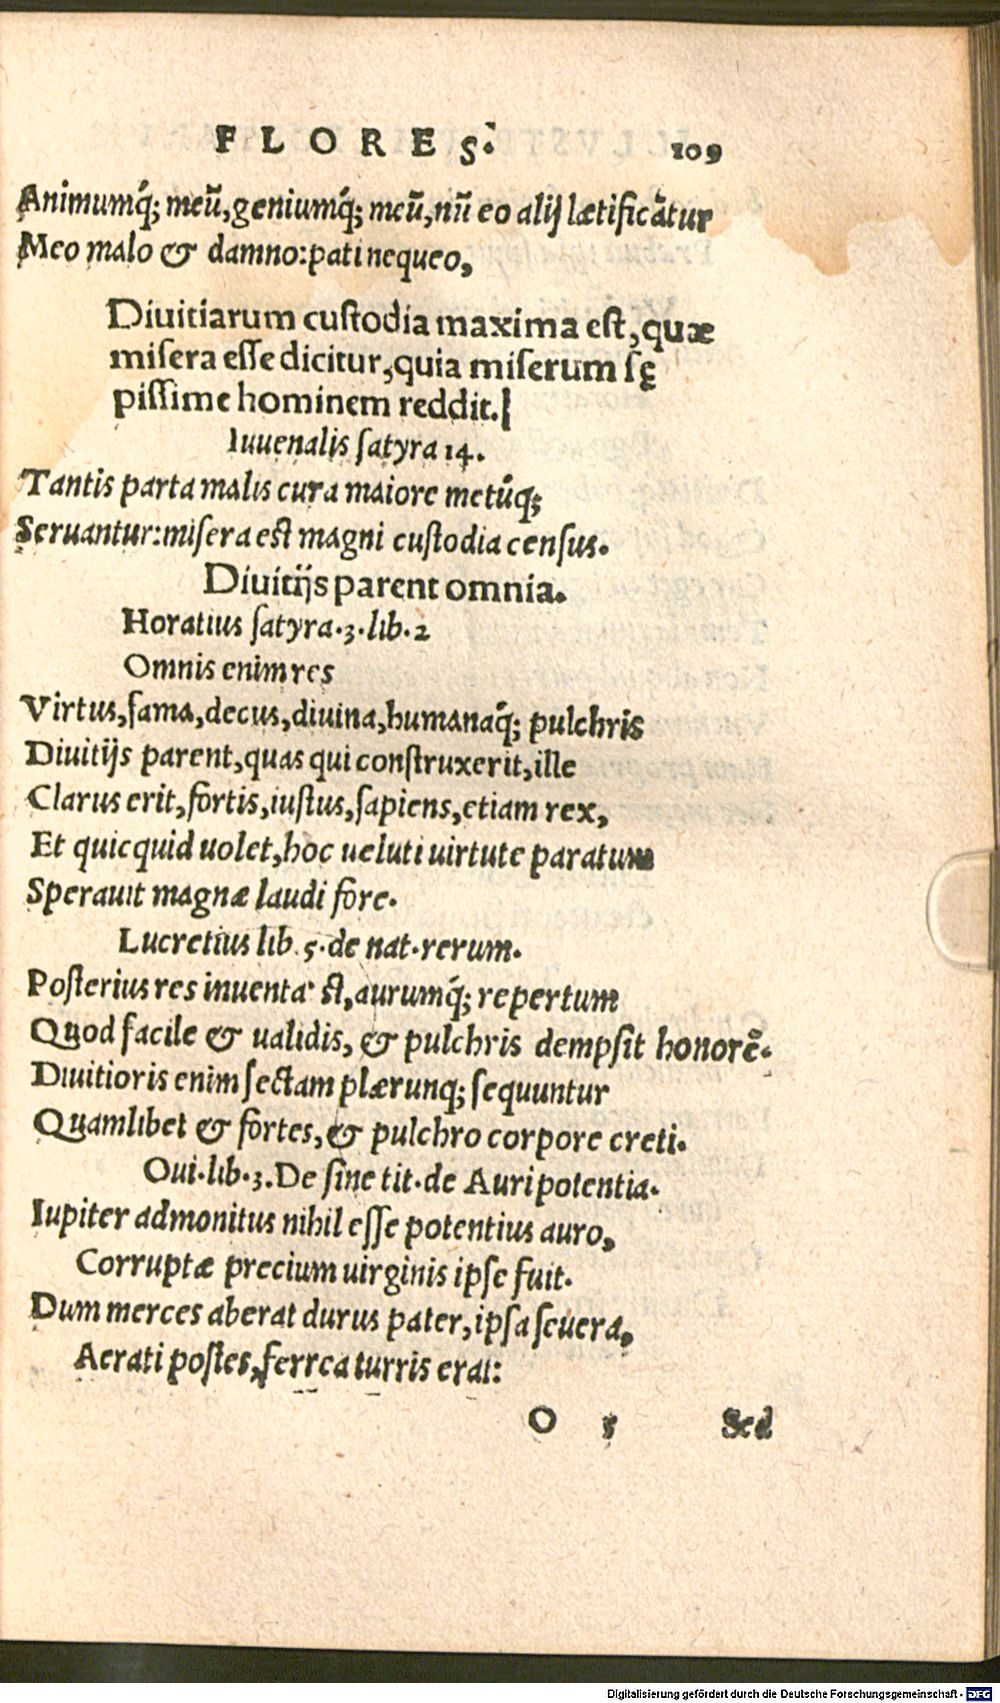 FLORES. 109
Animumq́; meũ, geniumq́; meũ, nũ eo alij lætificãtur
Meo malo & damno: pati nequeo,
Diuitiarum custodia maxima est, quæ
misera esse dicitur, quia miserum sę
pissime hominem reddit.
Iuuenalis satyra 14.
Tantis parta malis cura maiore metũq;
Seruantur: misera est magni custodia census.
Diuitijs parent omnia.
Horatius satyra. 3. lib. 2
Omnis enim res
Virtus, fama, decus, diuina, humanaq́; pulchris
Diuitijs parent, quas qui construxerit, ille
Clarus erit, fortis, iustus, sapiens, etiam rex,
Et quicquid uolet, hoc ueluti uirtute paratum
Sperauit magnæ laudi fore.
Lucretius lib. 5. de nat. rerum.
Posterius res inuenta' st, aurumq́; repertum
Quod facile & ualidis, & pulchris dempsit honorẽ.
Diuitioris enim sectam plærunq; sequuntur
Quamlibet & fortes, & pulchro corpore creti.
Oui. lib. 3. De sine tit. de Auri potentia.
Iupiter admonitus nihil esse potentius auro,
Corruptæ precium uirginis ipse fuit.
Dum merces aberat durus pater, ipsa seuera,
Aerati postes, ferrea turris erat:
O 5 Sed
Digitalisierung gefördert durch die Deutsche Forschungsgemeinschaft - DFG